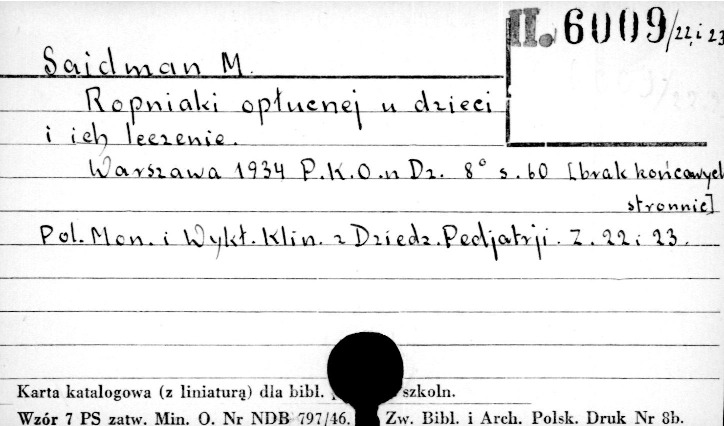 II. 6009/22 i 23
Saidman M.
Ropniaki opłucnej u dzieci
i ich leczenie.
Warszawa 1934 P.K.O.n Dz. 8° s. 60 [brak końcowych
stronnic]
Pol. Mon. i Wykł. Klin. z Dziedz. Pedjatrji. Z. 22 i 23.
Karta katalogowa (z liniaturą) dla bibl. szkoln.
Wzór 7 PS zatw. Min. O. Nr NDB 797/46. Zw. Bibl. i Arch. Polsk. Druk Nr 8b.